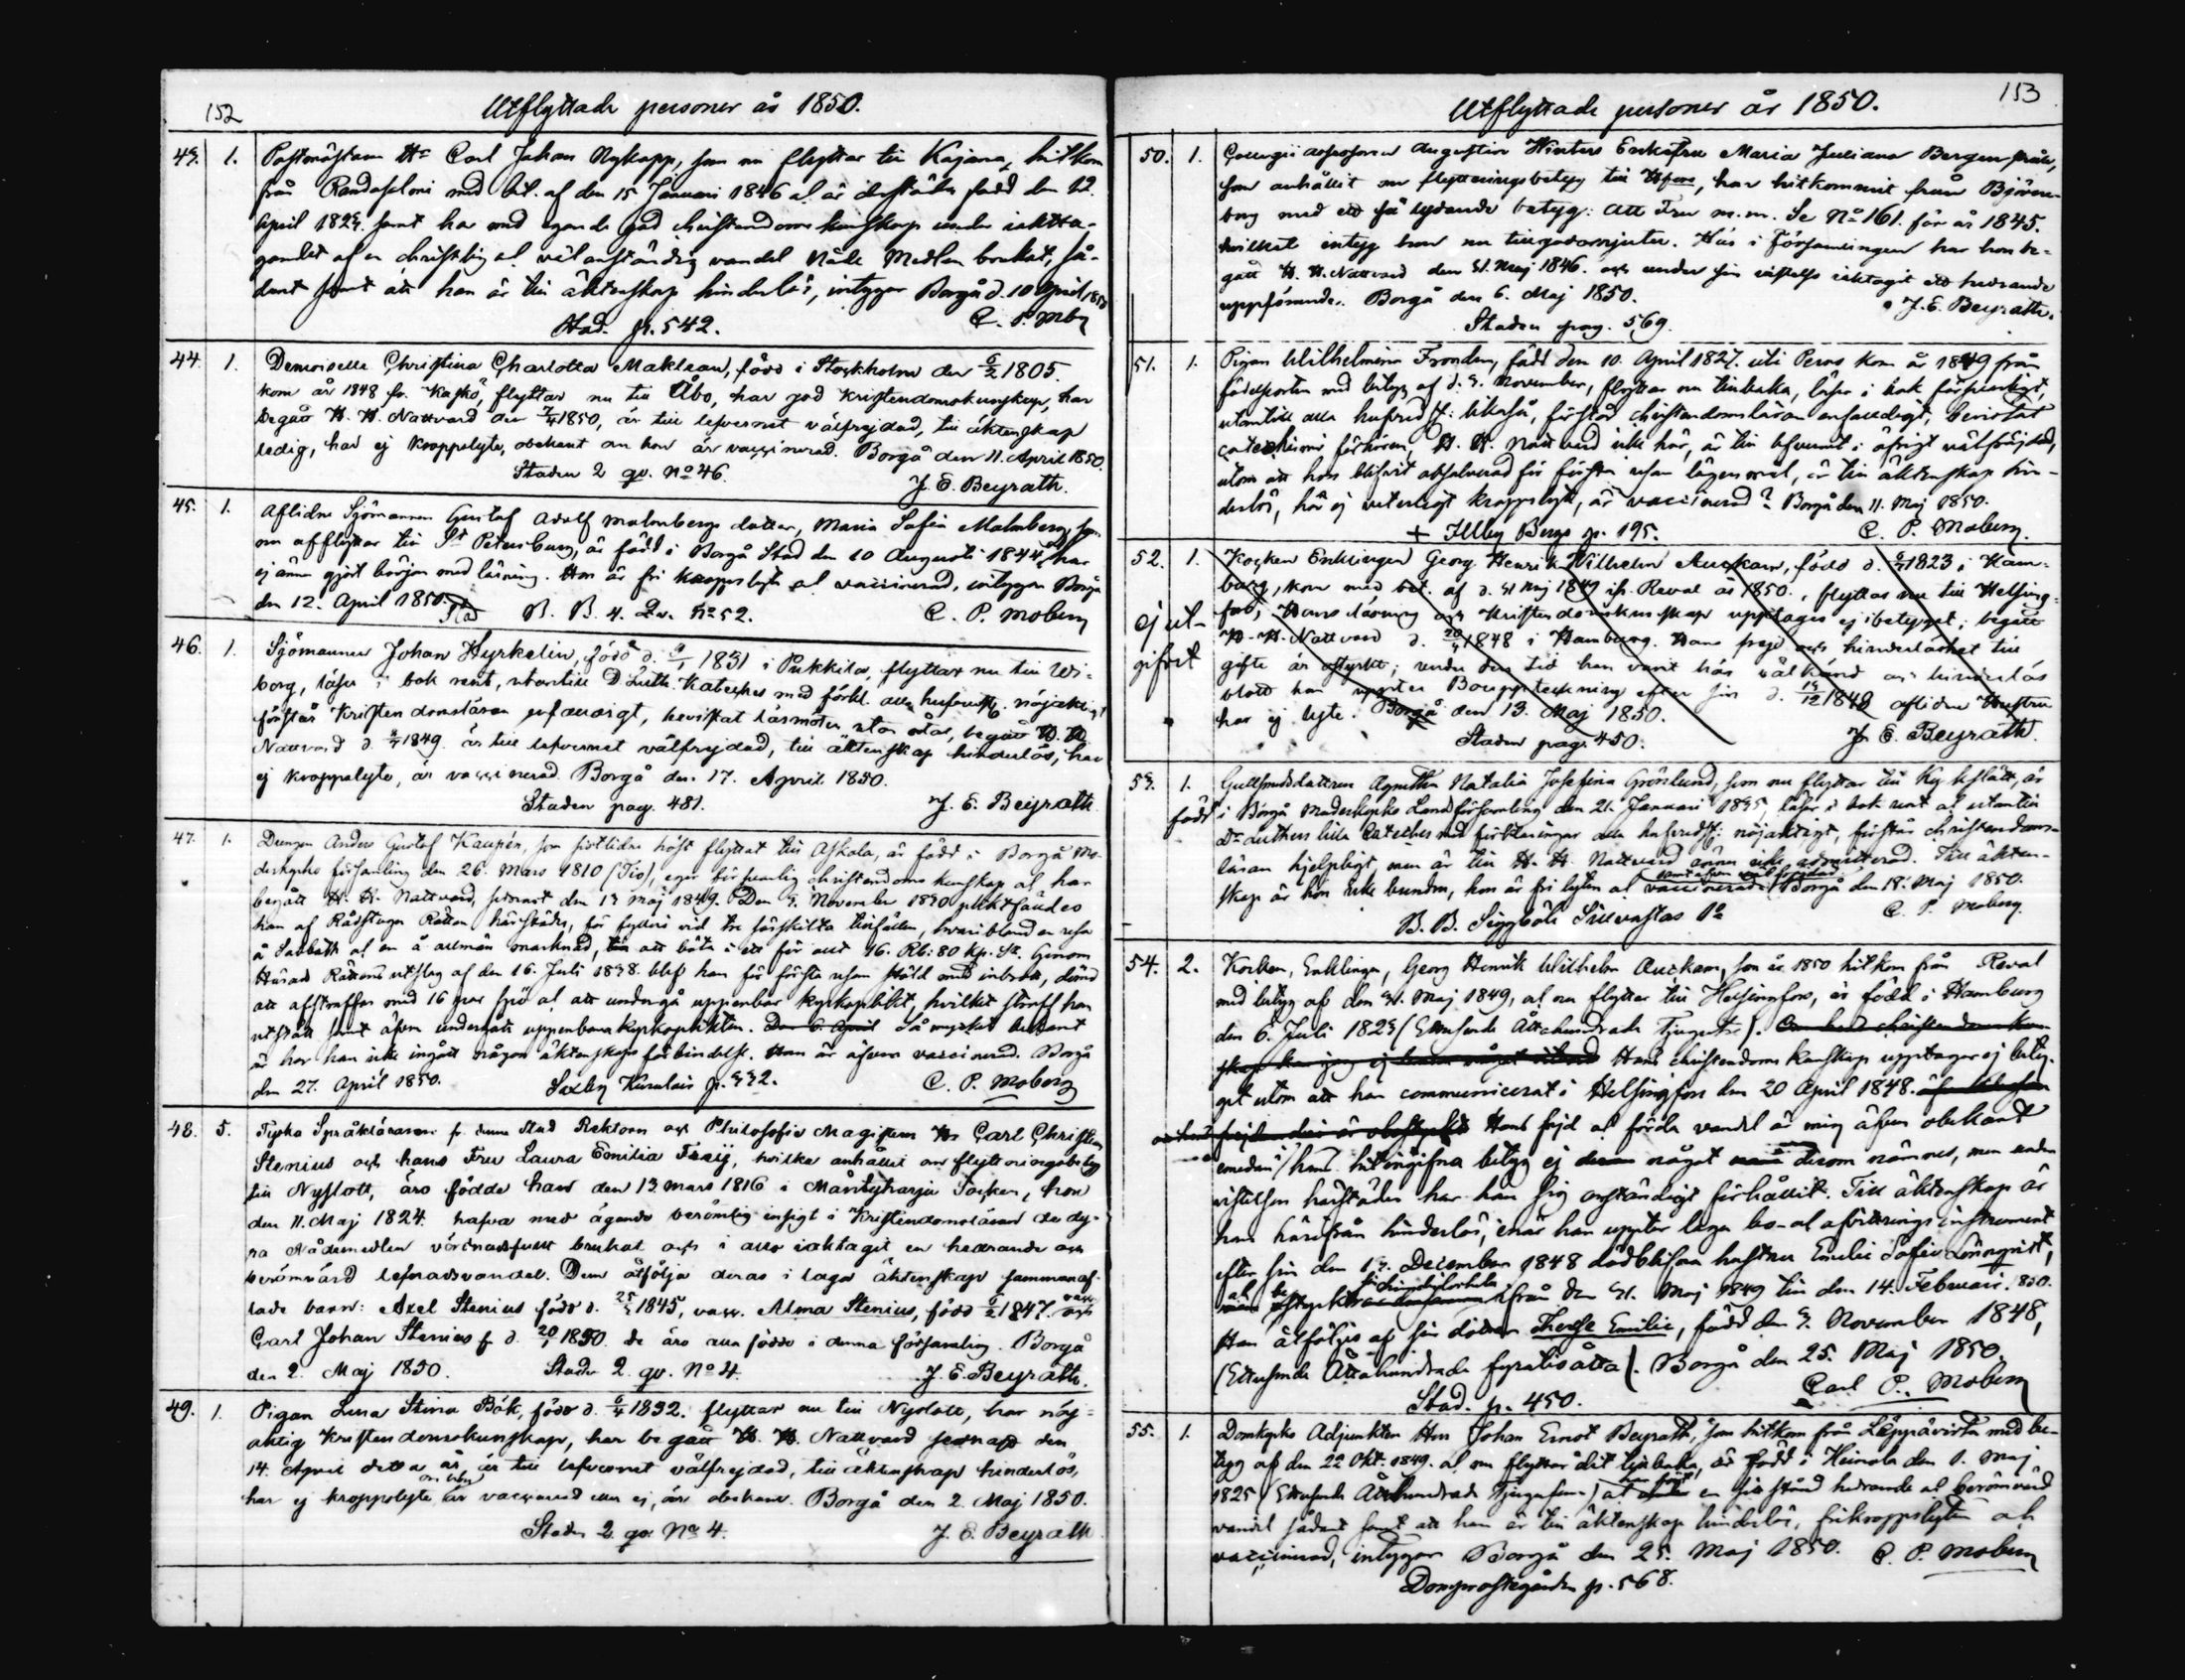 152
Utflyttade personer år 1850.
43. 1. Postmästaren Hr Carl Johan Nykopp, som nu flyttar till Kajana, hitkom
från med bet. af den 15 Januari 1846 är född den 12.
April 1823. samt har med egande god christendoms kunskap under iaktta-
gandet af en christlig och välanständig vandel Nåde Medlen brukat, så-
dant samt att han är till äktenskap hinderlös, intygar Borgå d. 10 April 1850
Stad. p. 542. C. P. Mbg
44. 1. Demoiselle Christina Charlotta Maklean, född i Stockholm den 6/2 1805.
kom år 1848 fr. Kaskö, flyttar nu till Åbo, har god Kristendomskunskap, har
begått H. H. Nattvard den 1850, är till lefvernet välfrejdad, till äktenskap
ledig, har ej kroppslyte, obekant om hon är vaccinerad. Borgå den 11. April 1850.
Staden 2 qv. No 46. J. E. Beyrath.
45. 1. Aflidne Sjömannen Gustaf Adolf Malmbergs dotter, Maria Sofia Malmberg, som
nu afflyttar till St Petersburg, är född i Borgå Stad den 10 Augusti 1844, har
ej ännu gjort början med läsning. Hon är fri kroppslyte och vaccinerad, intygar Borgå
den 12. April 1850. Stad B. B. 4. Qv. No 52. C. P. Moberg
46. 1. Sjömannen Johan Hyrkelin, född d. 9/1 1831 i Pukkila, flyttar nu till Wi-
borg, läser i bok rent, utantill D Luth. Kateches med förkl. alla hufvudst. nöjaktigt
förstår Kristendomsläran enfaldigt, bevistat läsmöten, begått H. H.
Nattvard d. 1849. är till lefvernet välfrejdad, till äktenskap hinderlös, har
ej kroppslyte, är vaccinerad. Borgå den 17. April 1850.
Staden pag. 481. J. E. Beyrath
47. 1. Drengen Anders Gustaf Kaupén, som sistlidne höst flyttat till Askola, är född i Borgå Mo-
derkyrko församling den 26. Mars 1810 (Tio), eger försvarlig christendoms kunskap och har
begått H. H. Nattvard, senast den 13 Maj 1849. Den 3. November 1830 pliktfäldes
han af Rådstugu Rätten härstädes, för fylleri vid tre särskilta tillfällen, hvaribland en resa
å Sabbath och en å allmän marknad, till att böta i ett för allt 16. Rb: 80 Kp. Sr. Genom
Härads Rättens utslag af den 16. Juli 1838. blef han för första resan stöld med inbrott, dömd
att afstraffas med 16 par spö och att undergå uppenbar kyrkoplikt, hvilket straff han
utstått samt äfven undergått uppenbara kyrkoplikten. Den 6. April Så mycket bekant
är har han icke ingått något äktenskaps förbindelse. Han är äfven vaccinerad. Borgå
den 27. April 1850. Saxby Kurulais p. 332. C. P. Moberg
48. 5. Tyska Språkläraren fr. denna Stad Rektorn och Philosofie Magistern Hr Carl Christian
Stenius och hans Fru Laura Emilia Freij, hvilka anhållit om flyttningsbetyg
till Nyslott, äro födde han den 13 Mars 1816 i Mäntyharju Socken, hon
den 11. Maj 1824. hafva med ägande berömlig insigt i Kristendomsläran de dy-
ra Nådemedlen vördnadsfullt brukat och i allo iaktagit en hedrande och
berömvärd lefnadsvandel. Dem åtfölja deras i laga äktenskap sammanaf-
lade barn: Axel Stenius född d. 25/3 1845, vacc. Alma Stenius, född 6/2 1847. vacc. och
Carl Johan Stenius f. d. 20/1 1850. de äro alla födde i denna församling. Borgå
den 2. Maj 1850. Staden 2. qv. No 4. J. E. Beyrath.
49. 1. Pigan Lena Stina Bök, född d. 6/4 1832. flyttar nu till Nyslott, har nöj-
aktig Kristendomskunskap, har begått H. H. Nattvard senast den
14. April detta år, är till lefvernet välfrejdad, till äktenskap hinderlös,
har ej kroppslyte, om hon är vaccinerad eller ej, är obekant. Borgå den 2. Maj 1850.
Staden 2 qv. No 4. J. E. Beyrath
153
Utflyttade personer år 1850.
50. 1. Collegii assessorn Augustin Winters Enkefru Maria Juliana Bergenstråle,
som anhållit om flyttningsbetyg till, har hitkommit från Björne-
borg med ett så lydande betyg: att Fru m.m. Se No 161. för år 1845.
hvilket intyg hon nu tillgodonjuter. Här i Församlingen har hon be-
gått H. H. Nattvard den 31. Maj 1846. och under sin vistelse iaktagit ett hedrande
uppförande. Borgå den 6. Maj 1850. J. E. Beyrath.
Staden pag. 569.
51. 1. Pigan Wilhelmina Frondén, född den 10. April 1827. uti Perno kom år 1849 från
födelseorten med betyg af d. 3. November, flyttar nu tillbaka, läser i bok försvarligt,
utantill alla hufvudst: likaså, förstår christendomsläran enfaldigt, bevistat
catechismi förhören, H. H. Nattvard icke här, är till lefvernet i öfrigt välfrejdad,
utom att hon blifvit absolverad för första resan lägersmål, är till äktenskap hin-
derlös, har ej veterligt kroppslyte, är vaccinerad? Borgå den 11. Maj 1850.
+ Illby Bergs p. 195. C. P. Moberg.
52. 1. Kocken Enklingen Georg Henrik Wilhelm Auckam, född d. 6/7 1823 i Ham-
burg, kom med bet. af d. 31 Maj 1849 ifr. Reval år 1850., flyttar nu till Helsing-
fors, Hans läsning och Kristendomskunskap upptages ej i betyget; begått
H. H. Nattvard d. 20/4 1848 i Hamburg. Hans frejd och hinderlöshet till
gifte är ostyrkt; under den tid han varit här välkänd och hinderlös
blott han uppter Bouppteckning efter sin d. 13/12 1848 aflidne Hustru
har ej lyte. Borgå den 13. Maj 1850.
Staden pag. 450. J. E. Beyrath.
ej ut-
gifvet
53. 1. Guldsmedsdottren Agatha Natalia Josefina Grönlund, som nu flyttar till Kyrkslätt, är
född i Borgå Moderkyrko Landsförsamling den 21. Januari 1835 läser i bok rent och utantill
Dr Luthers lilla Cateches med förklaringar alla hufvudst: nöjaktigt, förstår christendoms-
läran hjelpligt, men är till H. H. Nattvard ännu icke admitterad. Till äkten-
skap är hon icke bunden, hon är fri lyten och vaccinerad samt äfven välfrejdad. Borgå den 18. Maj 1850.
B. B. Siggböle Sillvastas C. P. Moberg.
54. 2. Kocken, Enklingen, Georg Henrik Wilhelm Auckam, som år 1850 hitkom från Reval
med betyg af den 31. Maj 1849, och nu flyttar till Helsingfors, är född i Hamburg
den 6. Juli 1823 (Ettusende Åttahundrade Tjugutre). Om hans christendoms kun-
skap kan jag ej Hans christendoms kunskap upptager ej bety-
get utom att han communicerat i Helsingfors den 20 April 1848.
Hans frejd och förda vandel är mig äfven obekant
emedan i hans hitingifna betyg ej något derom nämnes, men under
vistelsen härstädes har han sig anständigt förhållit. Till äktenskap är
han härifrån hinderlös, enär han uppter laga bo- och afvittrings instrument
efter sin den 13. December 1848 dödblifna hustru Emilie Sofie Lönnqvist,
ifrån den 31. Maj 1849 till den 14. Februari 1850.
Han åtföljes af sin dotter Therese Emilie, född den 3. November 1848,
(Ettusende Åttahundrade fyratioåtta). Borgå den 25. Maj 1850.
Stad. p. 450. Carl P. Moberg
55. 1. Domkyrko Adjunkten Herr Johan Ernst Beyrath, som hitkom från Läppävirta med be-
tyg af den 22 Okt. 1849. och nu flyttar dit tillbaka, är född i Heinola den 1. Maj
1825 (Ettusende Åttahundrade Tjugufem) och har fört en sitt stånd hedrande och berömvärd
vandel sådant samt att han är till äktenskap hinderlös, fri kroppslyten och
vaccinerad, intygar Borgå den 25. Maj 1850. C. P. Moberg
Domprostgården p. 568.